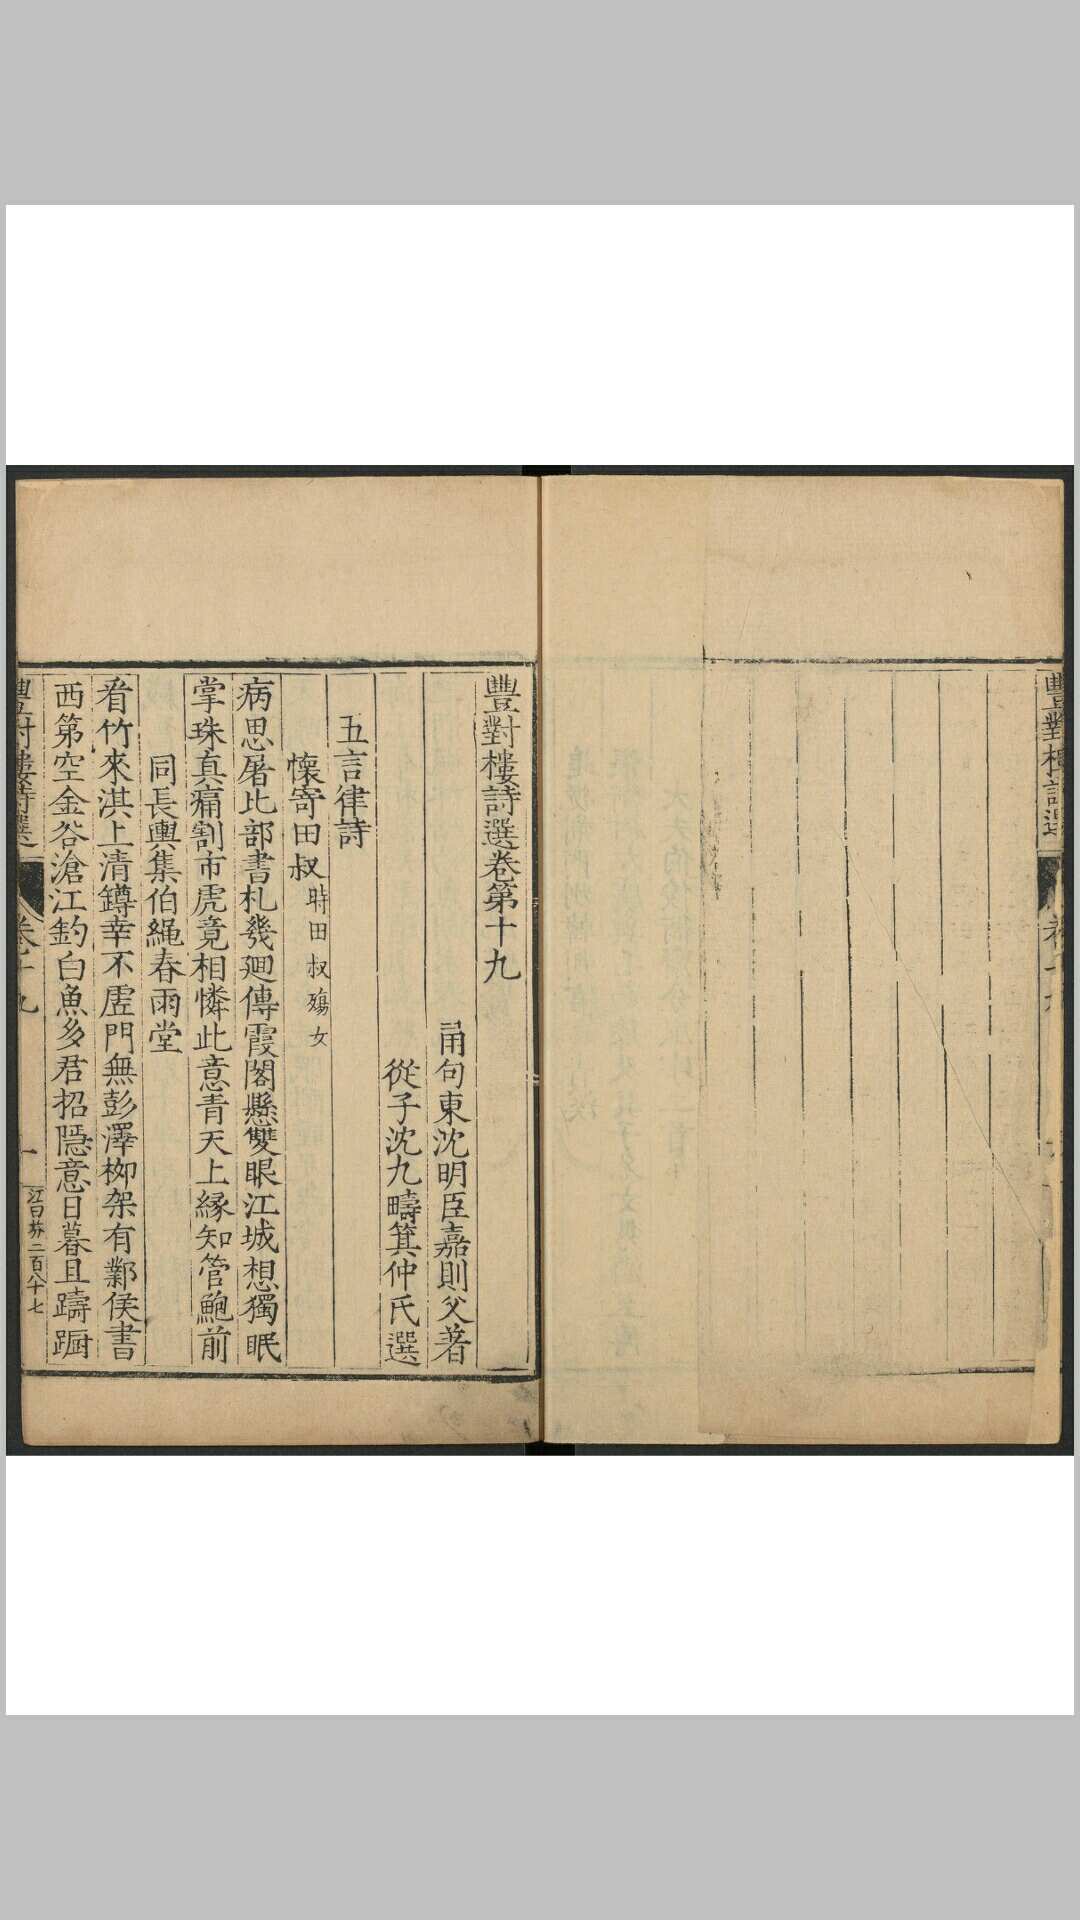 豐對樓詩選
豐對樓詩選卷第十九
甬句東沈明臣嘉則父著
從子沈九疇箕仲氏選
五言律詩
懷寄田叔時田叔殤女
病思屠比部書札發廻傳霞閣懸雙眼江城想獨眠
掌珠真痛割市虎竟相憐此意青天上緣知管鮑前
同長輿集伯繩春雨堂
看竹來淇上清鐏幸不虛門無彭澤栁架有鄴侯書
西第空金谷滄江釣白魚多君招隱意日暮且躊蹰
豐對樓詩選 卷十九 一
二百八十七